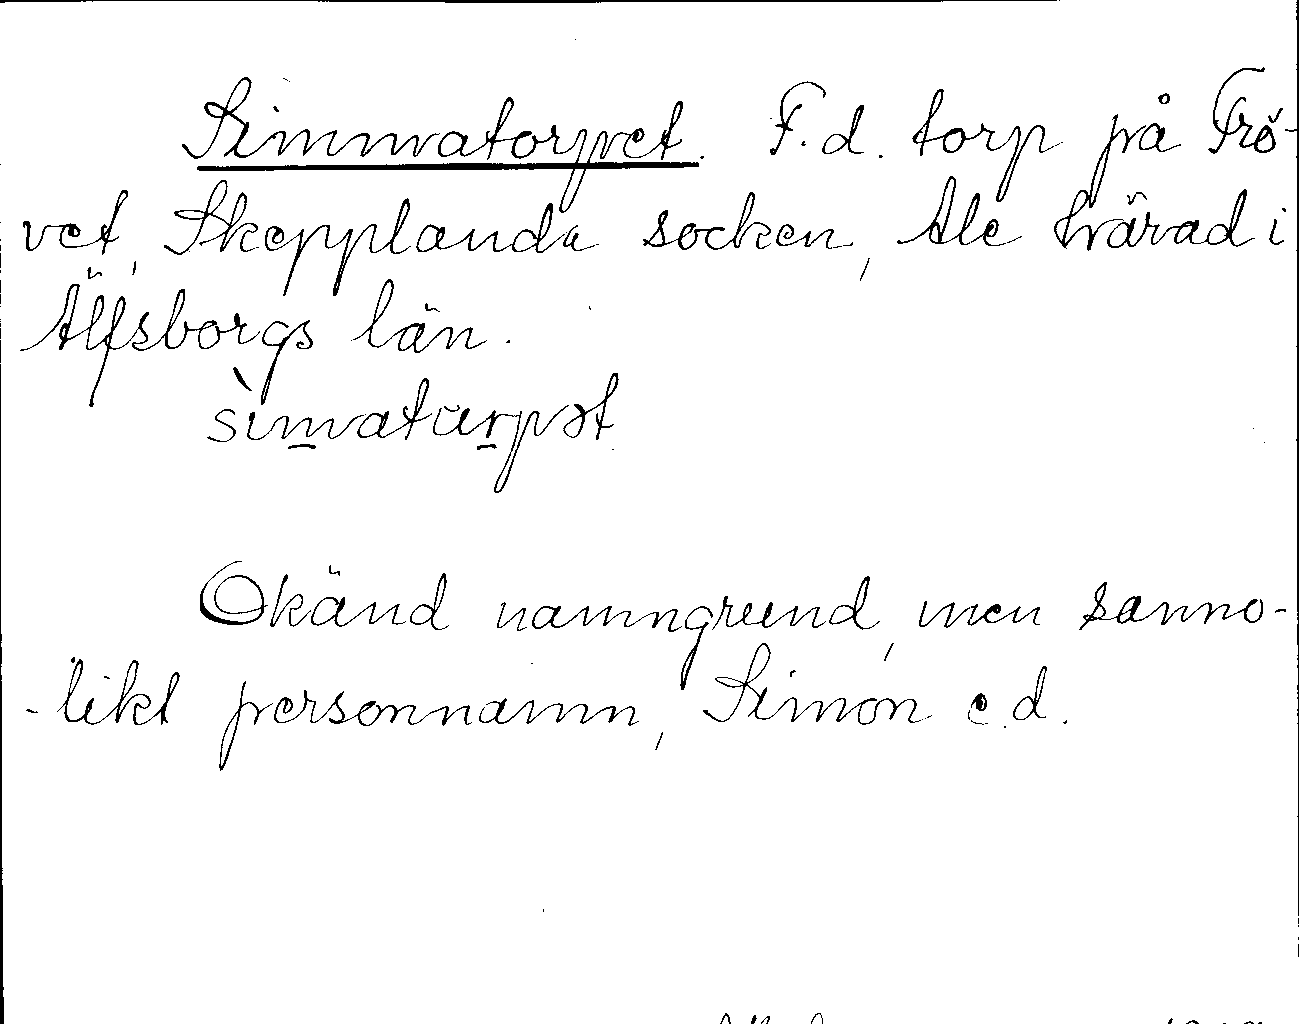 Simmatorpet. F.d. torp på Frö-
vet, Skepplanda socken, Ale härad i
Älfsborgs län.
sìm̲atur̲pət
Okänd namngrund, men sanno-
-likt personnamn, Simon e.d.